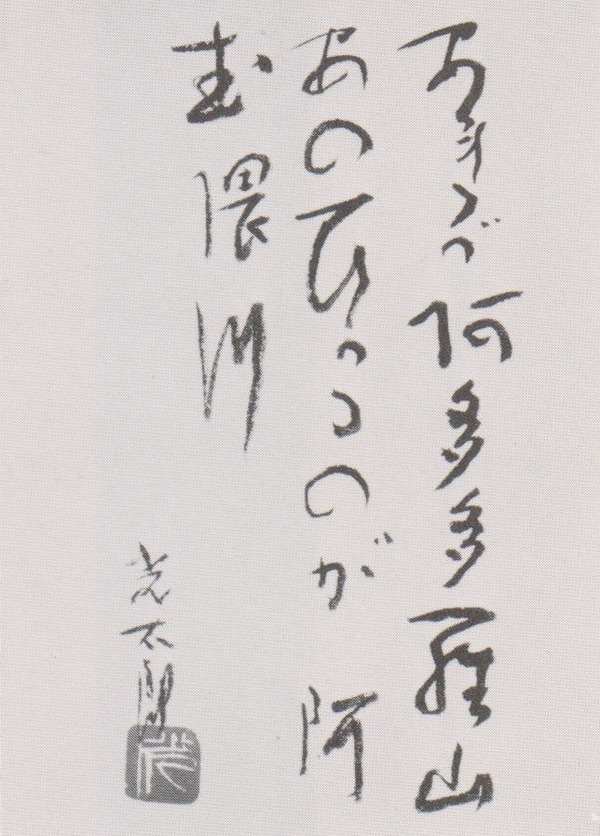 あれが阿多多羅山
あのひかるのが 阿
武隈川
光太郎
光